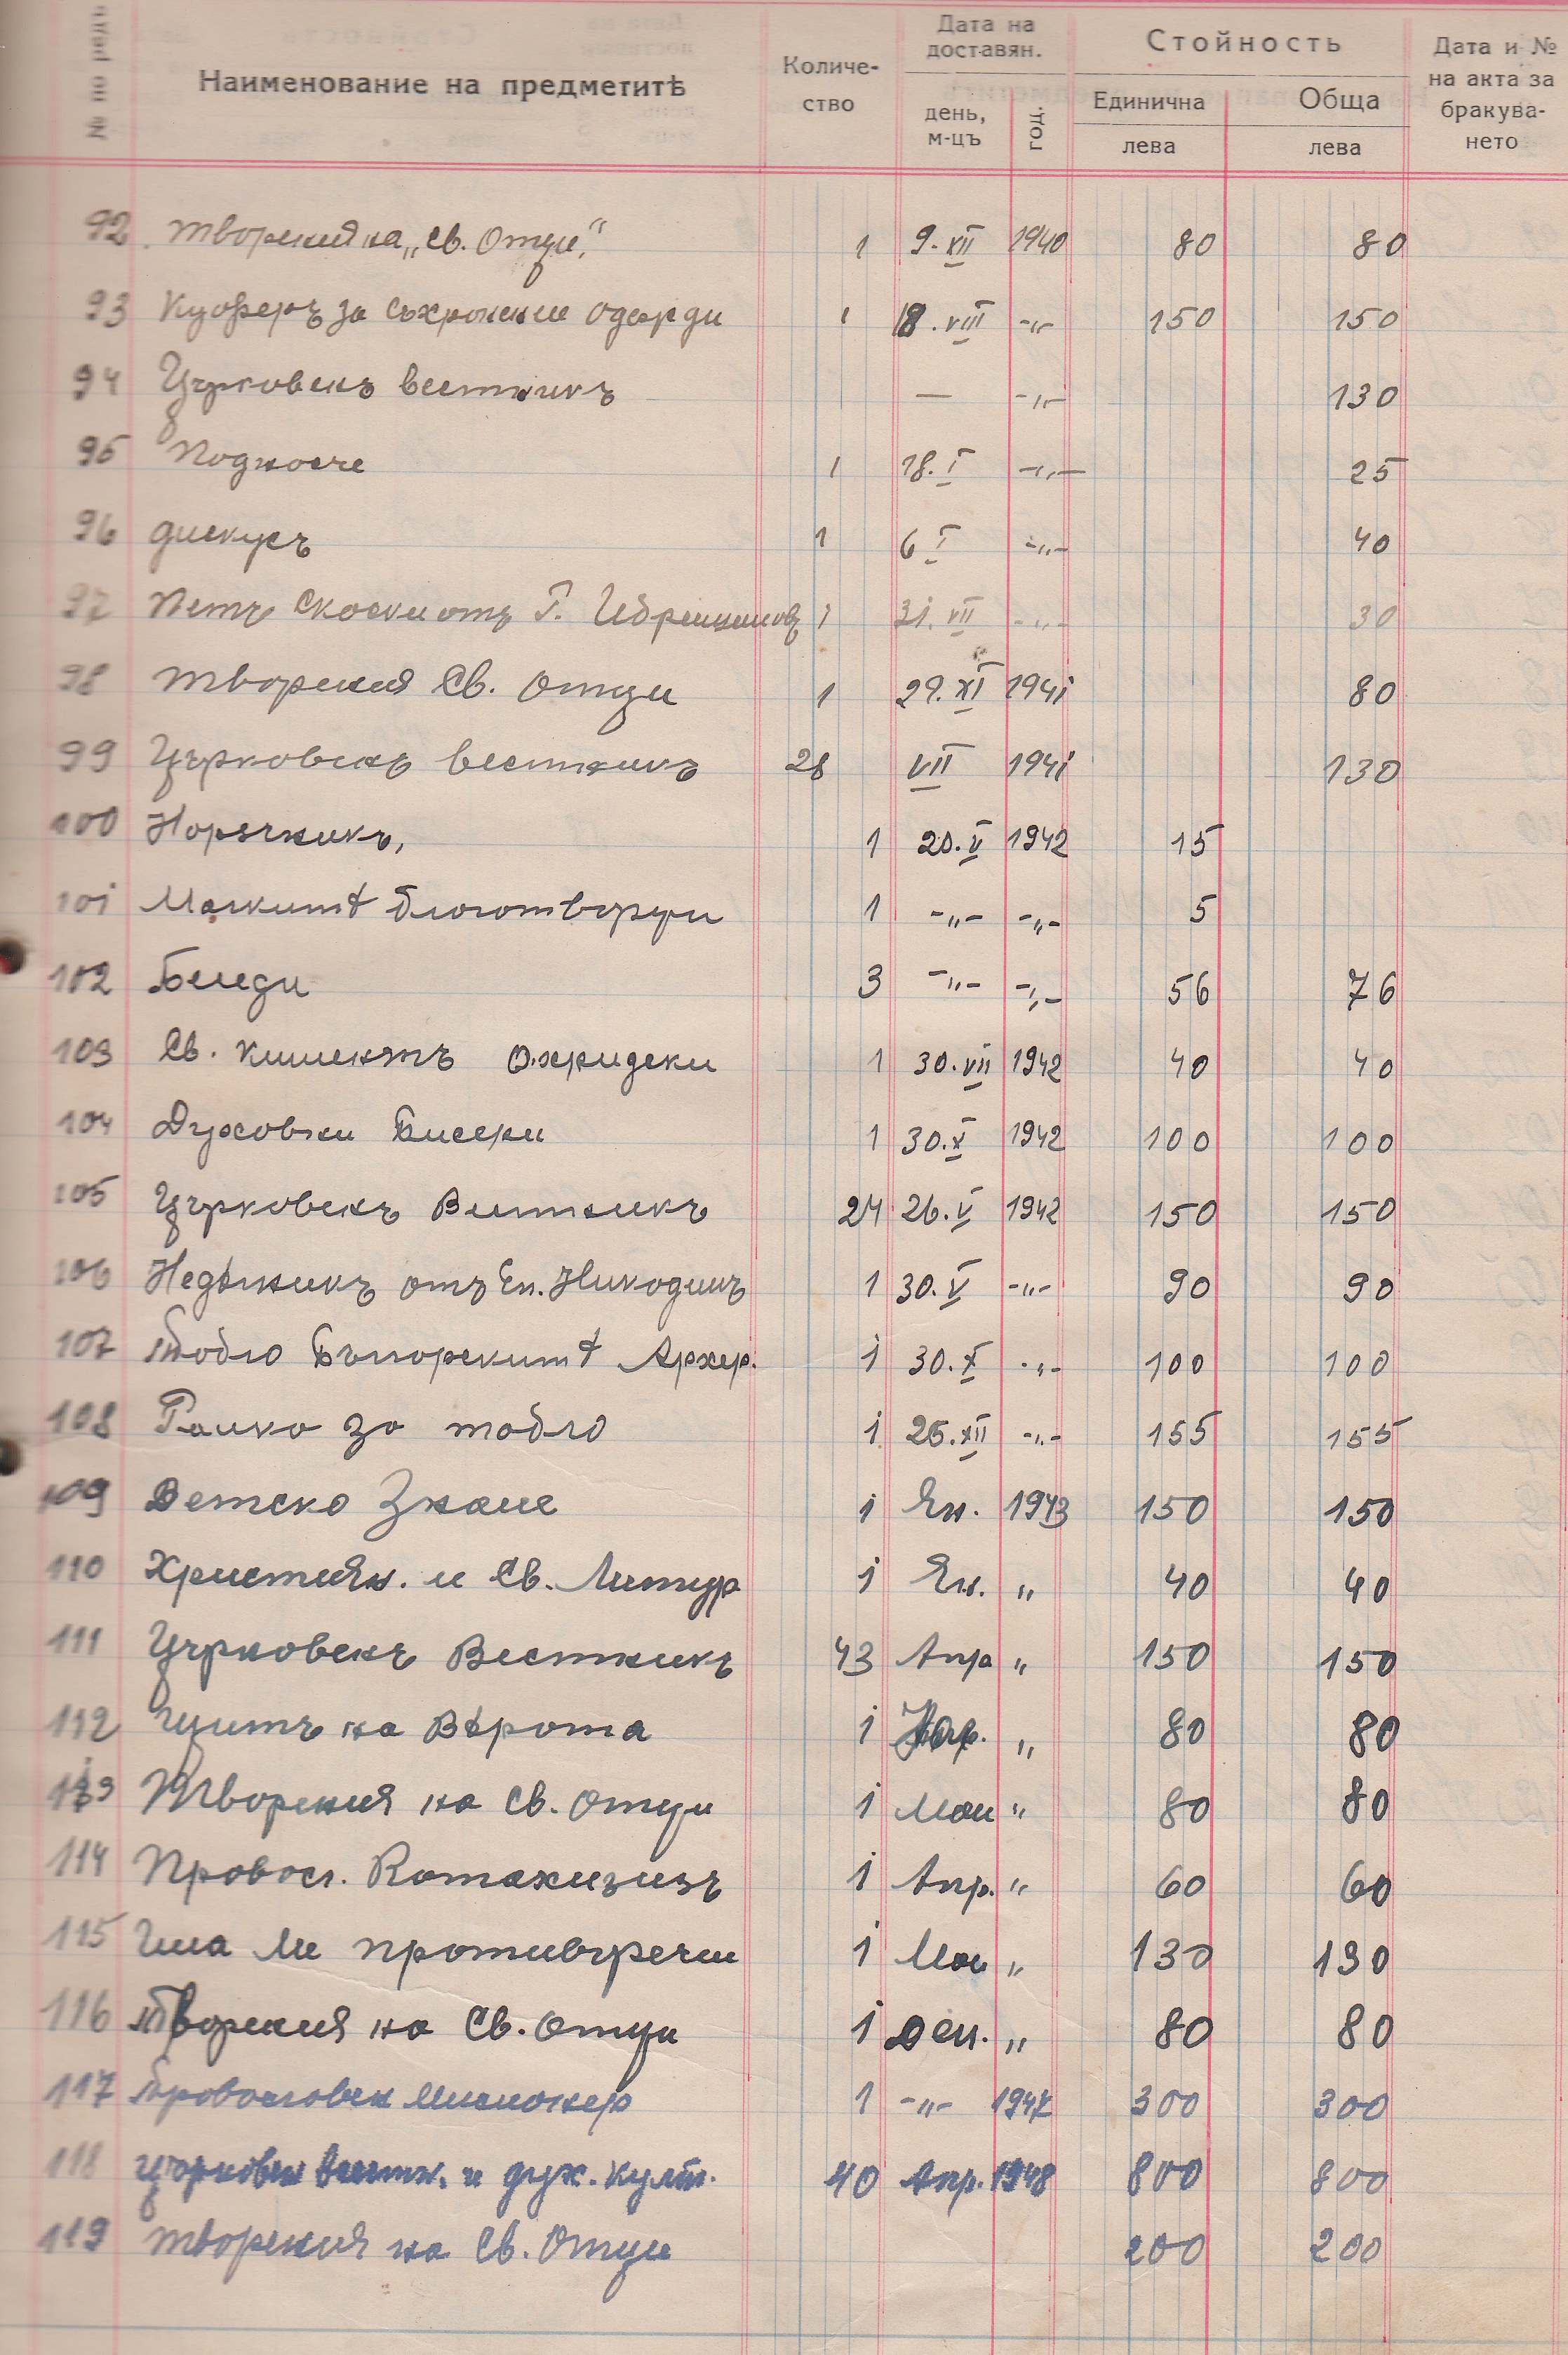 № по редъ
Наименование на предметитѣ
Количе-
ство
Дата на
доставян.
день,
м-цъ
год.
Стойность
Единична
лева
Обща
лева
Дата и №
на акта за
бракува-
нето
92 Творения на „Св. Отци“ 1 9.XII 1940 80 80
93 Куферъ за съхронение одежди 1 18.VIII -„- 150 150
94 Църковенъ вестникъ — -„- 130
95 Подносче 1 18.I -„- 25
96 дискусъ 1 6 I -„- 40
97 Петъ от Г. 1 31.VII -„- 30
98 Творения Св. Отци 1 29.XI 1941 80
99 Църковенъ вестникъ 28 VII 1941 130
100 Наръчникъ, 1 20.V 1942 15
101 Малкитѣ благотворци 1 -„- -„- 5
102 Беледи 3 -„- -„- 56 76
103 Св. Климентъ Охридски 1 30.VII 1942 40 40
104 Духовни Бисери 1 30.X 1942 100 100
105 Църковенъ Вестникъ 24 26.V 1942 150 150
106 Недѣлникъ отъ Еп. Никодимъ 1 30.V -„- 90 90
107 Табло Българскитѣ Архер. 1 30.X -„- 100 100
108 Рамка за табло 1 25.XII -„- 155 155
109 Детско Знаме 1 Ян. 1943 150 150
110 Християн. и Св. Литур 1 Ян. „ 40 40
111 Църковенъ Вестникъ 43 Апр „ 150 150
112 Щитъ на Вѣрата 1 „ 80 80
113 Творения на Св. Отци 1 Май „ 80 80
114 Правосл. Катахизизъ 1 Апр. „ 60 60
115 Има ли противоречие 1 Май „ 130 130
116 Творения на Св. Отци 1 Дек. „ 80 80
117 Православен мисионер 1 -„- 1947 300 300
118 Църковен вестн. и дух. култ. 40 Апр. 1948 800 800
119 Творения на Св. Отци 200 200